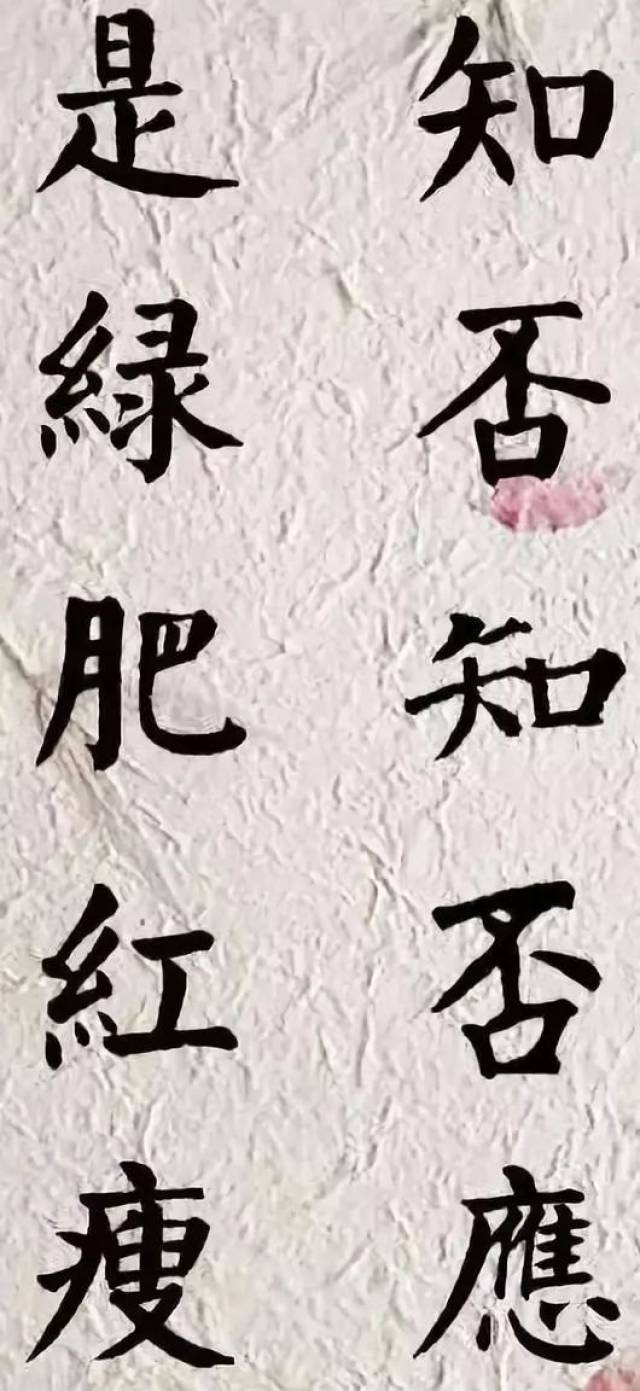 知否知否應
是緑肥紅瘦